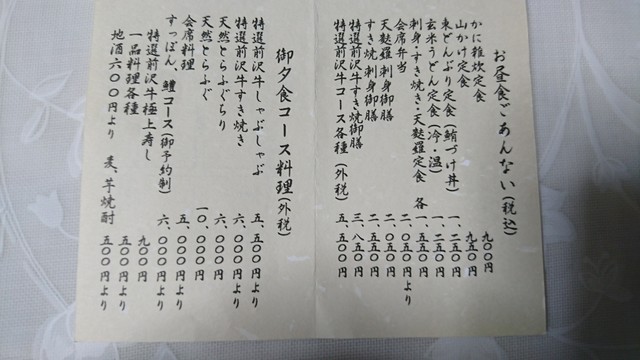 お昼食ごあんない(税込)
かに雑炊定食 九〇〇円
山かけ定食 九五〇円
東どんぶり定食(鮪づけ丼) 一、二五〇円
玄米うどん定食(冷・温) 一、二五〇円
刺身・すき焼き・天麩羅定食 各一、五五〇円
会席弁当 二、〇五〇円より
天麩羅刺身御膳 二、五五〇円
すき焼刺身御膳 二、五五〇円
特選前沢牛すき焼御膳 三、八五〇円
特選前沢牛コース各種(外税) 五、五〇〇円
御夕食コース料理(外税)
特選前沢牛しゃぶしゃぶ 五、五〇〇円より
特選前沢牛すき焼き 六、〇〇〇円より
天然とらふぐちり 六、〇〇〇円
天然とらふぐ 一〇、〇〇〇円
会席料理 五、〇〇〇円より
すっぽん、鱧コース(御予約制) 六、〇〇〇円より
特選前沢牛極上寿し 九〇〇円
一品料理各種 五〇〇円より
地酒六〇〇円より 麦、芋焼酎 五〇〇円より